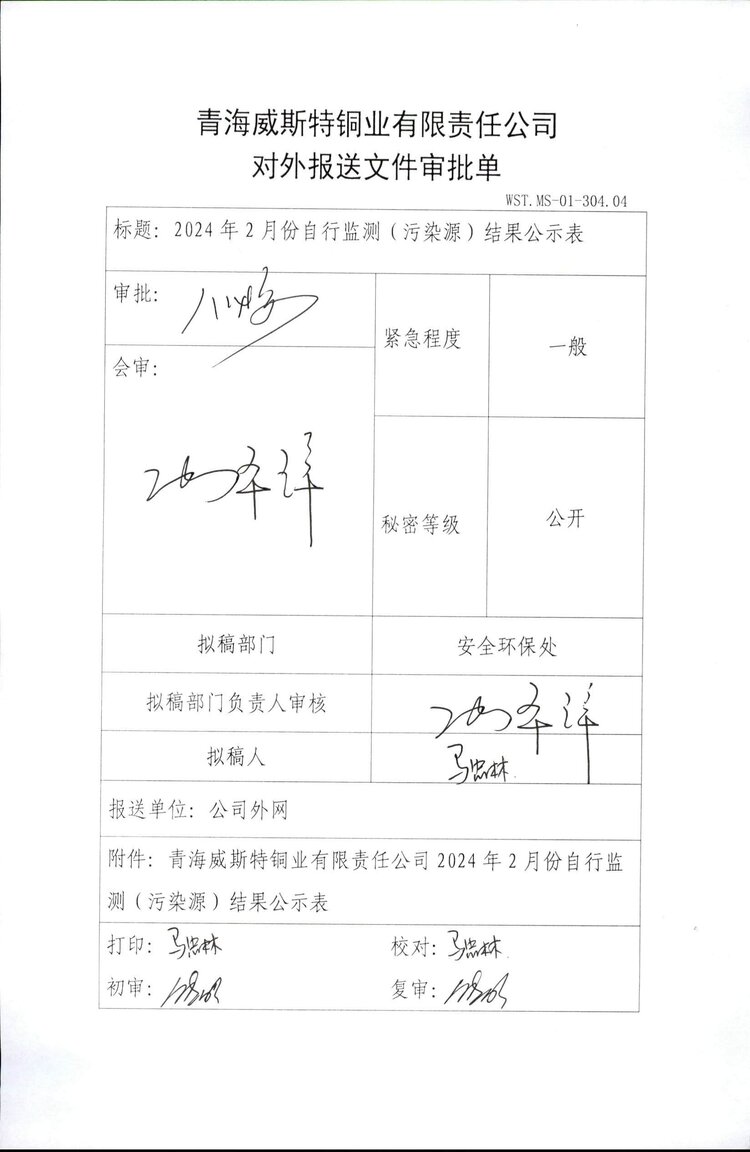 青海威斯特铜业有限责任公司
对外报送文件审批单
WST.MS-01-304.04
标题：2024年2月份自行监测（污染源）结果公示表
审批：
紧急程度
一般
会审：
秘密等级
公开
拟稿部门
安全环保处
拟稿部门负责人审核
拟稿人
马忠林
报送单位：公司外网
附件：青海威斯特铜业有限责任公司2024年2月份自行监
测（污染源）结果公示表
打印：马忠林
校对：马忠林
初审：
复审：